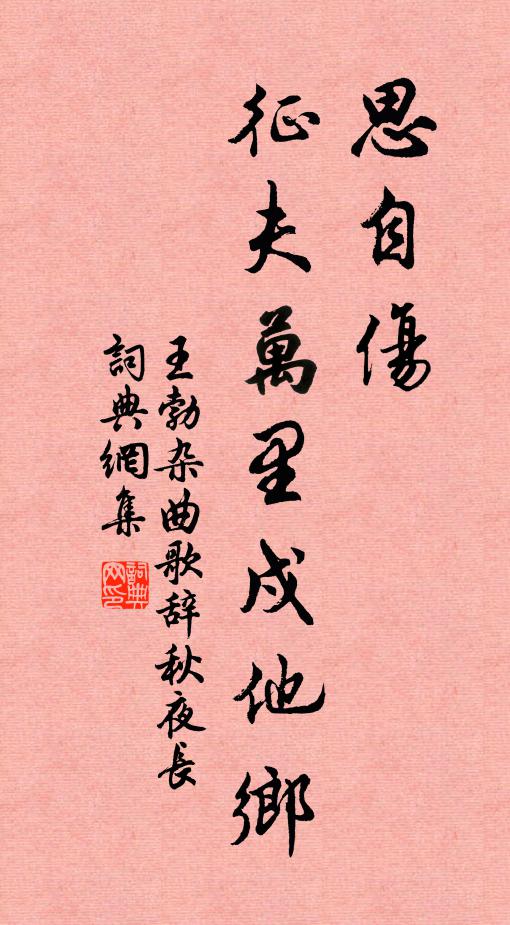 思自傷
征夫萬里戍他鄉
王勃杂曲歌辞秋夜長
詞典網集
詞典
网印